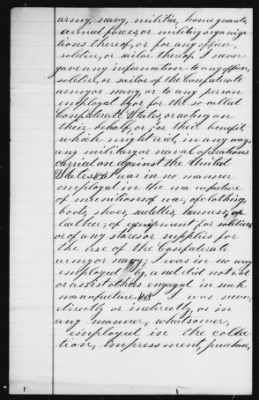 army, navy, militia, home guards,
armed forces, or military organiza-
tions thereof, or for any officer,
soldier, or sailor thereof. I never
gave any information to any officer,
soldier, or sailor of the Confederate
army or navy, or to any person
employed by or for the so called
Confederate States, or acting on
their behalf, or for their benefit
which might aid, in any way,
any military or naval operations
carried on against the United
States. I was in no manner
employed in the manufacture
of munitions of war, of clothing,
boots, shoes, saddles, harness, or
leather, of equipment for soldiers
or of any stores or supplies for
the use of the Confederate
army or navy; I was in no way
employed by, and did not aid
or assist others engaged in such
manufacture. I was never,
directly or indirectly, or in
any manner, whatsoever,
employed in the collec-
tion, impressment, purchase,